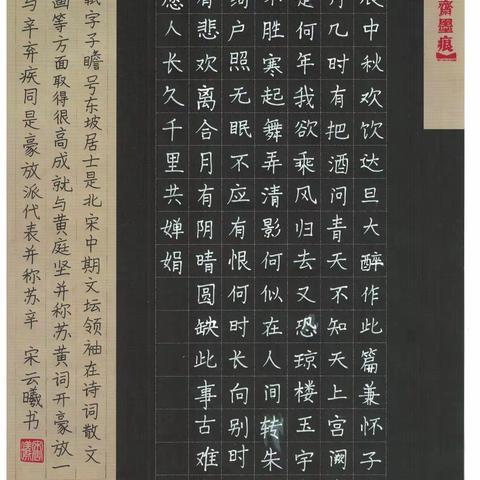 齋墨痕】
辰中秋欢饮达旦大醉作此篇兼怀子
月几时有把酒问青天不知天上宫阙
是何年我欲乘风归去又恐琼楼玉宇
不胜寒起舞弄清影何似在人间转朱
绮户照无眠不应有恨何时长向别时
有悲欢离合月有阴晴圆缺此事古难
愿人长久千里共婵娟
轼字子瞻号东坡居士是北宋中期文坛领袖在诗词散文
画等方面取得很高成就与黄庭坚并称苏黄词开豪放一
与辛弃疾同是豪放派代表并称苏辛 宋云曦书